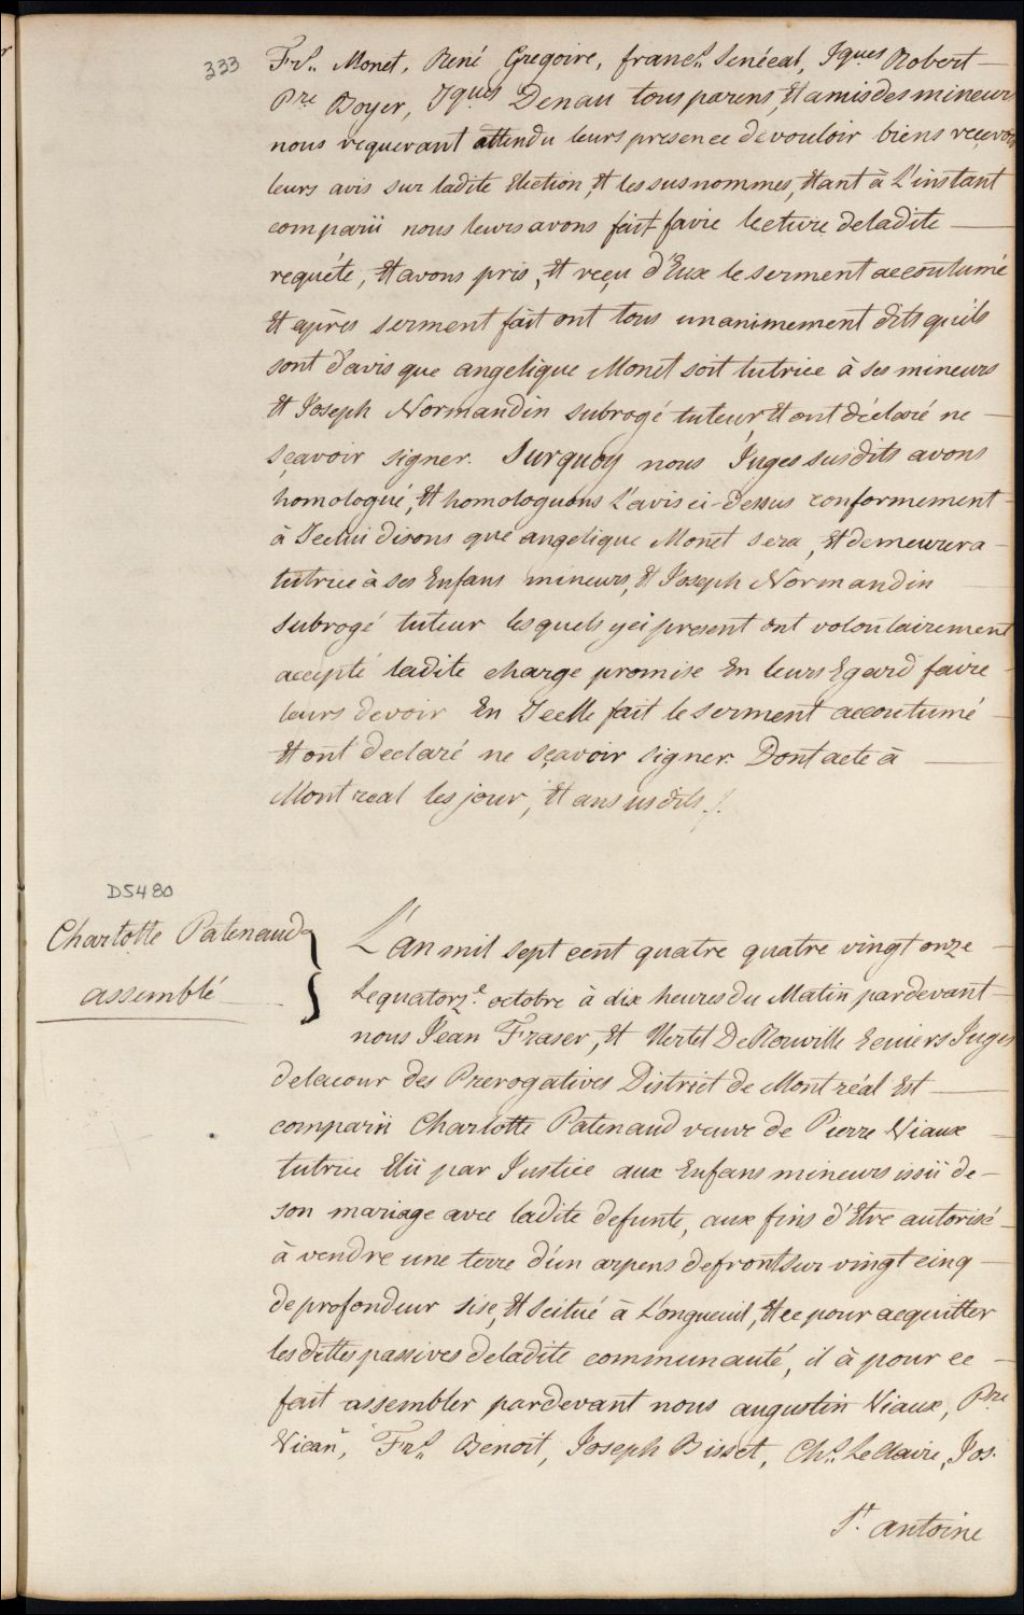 333
Frs. Monet, René Gregoire, francs. Senécal, Jques Robert
Pre Boyer, Jques Denau tous parens, Et amis des mineurs
nous requerant attendu leurs presence de vouloir biens recevoir
leurs avis sur ladite Election, Et les susnommes, Etant à L'instant
comparü nous leurs avons fait faire lecture deladite
requéte, Et avons pris, Et reçu d'Eux le serment accoutumé
Et aprés serment fait ont tous unanimement dits qu'ils
sont d'avis que angelique Monet soit tutrice à ses mineurs
Et Joseph Normandin subrogé tuteur Et ont déclaré ne
sçavoir signer. Surquoy nous Juges susdits avons
homologué, Et homologuons L'avis ci-dessus conformement
à Icelui disons que angelique Monet sera, Et demeurera
tutrice à ses Enfans mineurs, Et Joseph Normandin
subrogé tuteur lesquels yci present ont volontairement
accepté ladite charge promise En leurs Egard faire
leurs devoir En Icelle fait le serment accoutumé
Et ont declaré ne sçavoir signer. Dont acte à
Montreal les jour, Et an susdits ./.
D5480
Charlotte Patenaud
assemblé
L'an mil sept cent quatre quatre vingt onze
Le quatorze. octobre à dix heures du Matin pardevant
nous Jean Fraser, Et Hertel De Rouville Ecuiers Juges
delacour des Prerogatives District de Montréal Est
comparü Charlotte Patenaud veuve de Pierre Viaux
tutrice Elü par Justice aux Enfans mineurs issü de
son mariage avec ladite defunte, aux fins d'Etre autorisé
à vendre une terre d'un arpens defront sur vingt cinq
de profondeur sise, Et scitué à Longueuil, Et ce pour acquitter
les dettes passives deladite communauté, il à pour ce
fait assembler pardevant nous augustin Viaux, Pre
Frs. Benoit, Joseph Bisset, Chs. Leclaire, Jos.
St. antoine